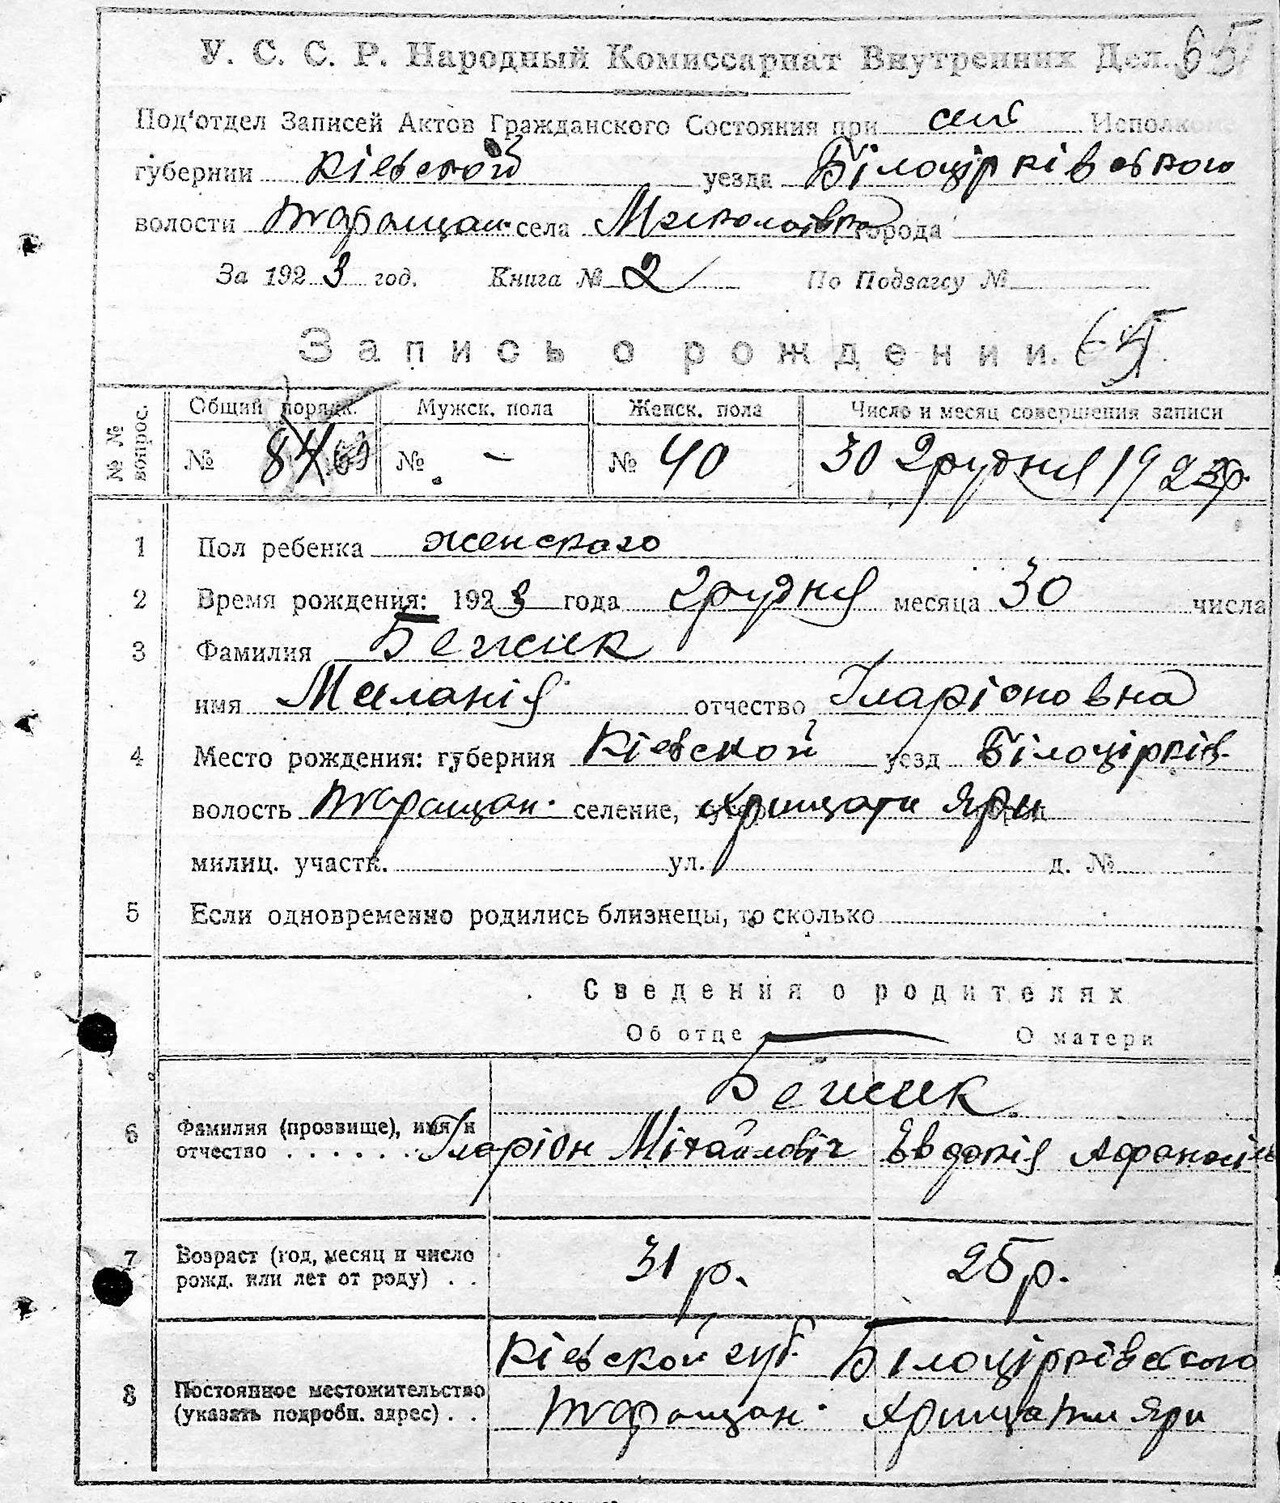 У. С. С. Р. Народный Комиссариат Внутренних Дел. 65
Под'отдел Записей Актов Гражданского Состояния при сел Исполкоме
губернии Кіевской уезда Білоцірківського
волости Таращан. села города
За 1923 год. Книга № 2 По Подзагсу №
Запись о рождении. 65
№ № вопрос. Общий порядк. Мужск. пола Женск. пола Число и месяц совершения записи
№ 84 69 № - № 40 30 грудня 1923р.
1 Пол ребенка женскаго
2 Время рождения: 1923 года грудня месяца 30 числа
3 Фамилия Бежик
имя Миланія отчество Іларіоновна
4 Место рождения: губерния Кіевской уезд Білоцірків.
волость Таращан. селение, Хрищати Яри
милиц. участк. ул. д. №
5 Если одновременно родились близнецы, то сколько
Сведения о родителях
Об отце О матери
Бежик
6 Фамилия (прозвище), имя и
отчество . . . . . . Іларіон Міхайловіч Евдокія
7 Возраст (год, месяц и число
рожд. или лет от роду) . . 31 р. 25 р.
Кіевской губ. Білоцірківського
8 Постоянное местожительство
(указать подробн. адрес) . . Таращан. Хрищати Яри